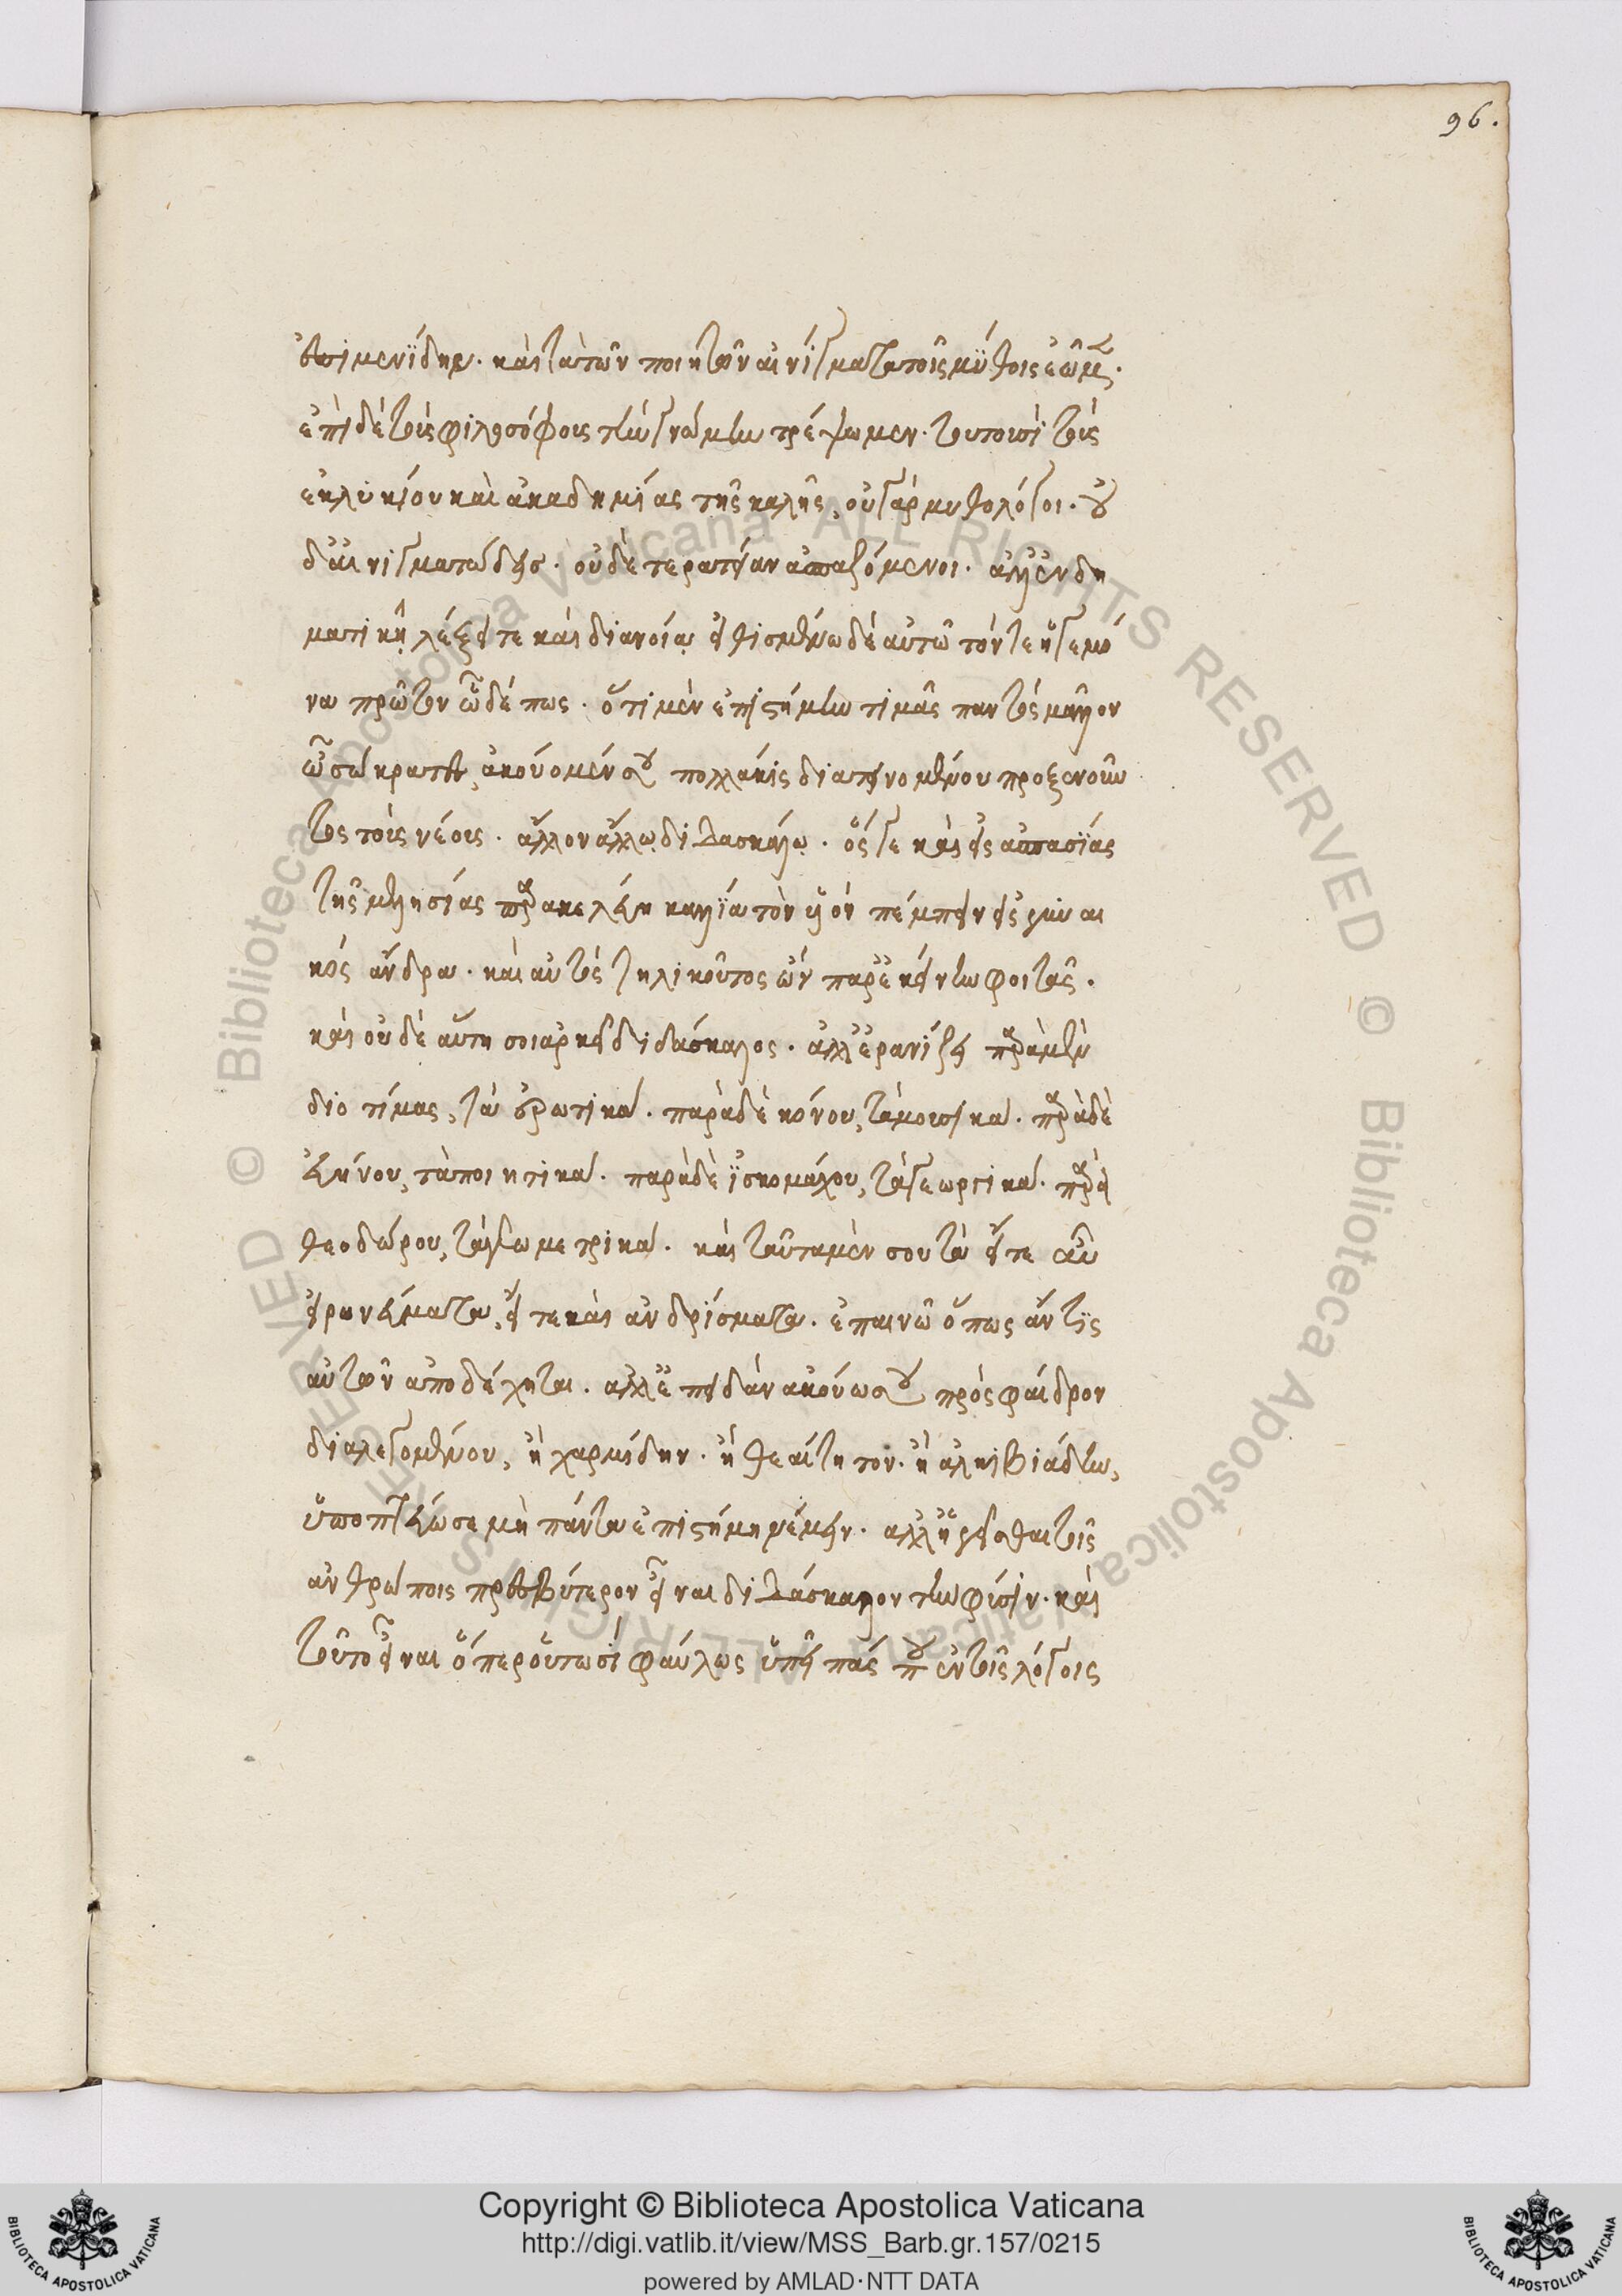 96.
Ἐπιμενίδην. καὶ τὰ τῶν ποιητῶν αἰνίγματα τοῖς μύθοις ἐῶμεν.
ἐπὶ δὲ τοὺς φιλοσόφους τὴν γνώμην τρέψωμεν. τουτουσὶ τοὺς
ἐκ λυκίου καὶ ἀκαδημίας τῆς καλῆς, οὐ γὰρ μυθολόγοι. οὐ
δ' αἰνιγματώδεις. οὐδὲ τερατείαν ἀσπαζόμενοι. ἀλλ' ἐν δη
ματικῇ λέξει τε καὶ διανοίᾳ εἰθισμένῳ δὲ αὐτῶ τόν γε ἡγεμό
να πρῶτον ὧδέ πως. ὅτι μὲν ἐπιστήμην τιμᾷς παντὸς μᾶλλον
ὦ σώκρατες, ἀκούομέν σου πολλάκις διατεινομένου προξενοῦν
τος τοὺς νέους. ἄλλον ἄλλῳ διδασκάλῳ. ὅς γε καὶ εἰς ἀσπασίας
τῆς μιλησίας παρακελεύῃ καλλίᾳ τὸν υἱὸν πέμπειν εἰς γυναι
κὸς ἄνδρα. καὶ αὐτὸς τηλικοῦτος ὢν παρ' ἐκείνην φοιτᾷς.
καὶ οὐδὲ αὕτη σοι ἀρκεῖ διδάσκαλος. ἀλλ' ἐρανίζει παρὰ μὲν
διοτίμας, τὰ ἐρωτικά. παρὰ δὲ κόνου, τὰ μουσικά. παρὰ δὲ
εὐήνου, τὰ ποιητικά. παρὰ δὲ ἰσχομάχου, τὰ γεωργικά. παρὰ
θεοδώρου, τὰ γεωμετρικά. καὶ ταῦτα μέν σου τὰ εἴτε εἰ
ρωνεύματα, εἴτε καὶ ἀνδρίσματα. ἐπαινῶ ὅπως ἄν τις
αὐτῶν ἀποδέχηται. ἀλλ' ἐπειδὰν ἀκούω σου πρὸς φαῖδρον
διαλεγομένου, ἢ χαρμίδην. ἢ θεαίτητον. ἢ ἀλκιβιάδην,
ὑποπτεύω σε μὴ πάντα ἐπιστήμη νέμειν. ἀλλ' ἡγεῖσθαι τοῖς
ἀνθρώποις πρεσβύτερον εἶναι διδάσκαλον τὴν φύσιν. καὶ
τοῦτο εἶναι ὅπερ οὑτωσὶ φαύλως ὑπεῖπάς που ἐν τοῖς λόγοις
Copyright © Biblioteca Apostolica Vaticana
http://digi.vatlib.it/view/MSS_Barb.gr.157/0215
powered by AMLAD·NTT DATA